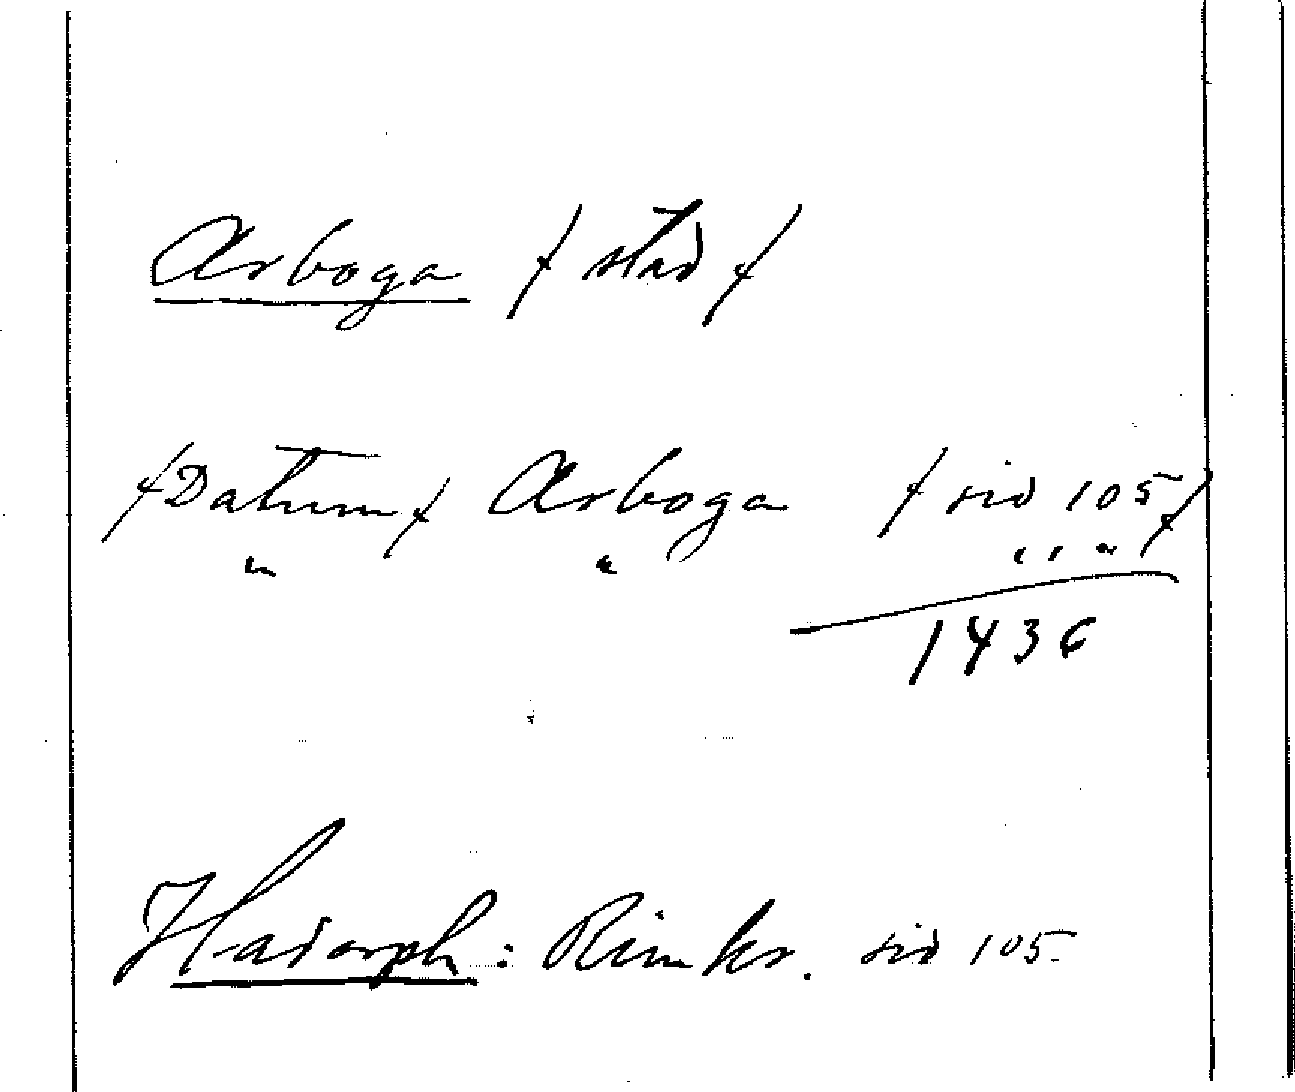 Arboga /: stad :/
/: Datum :/ Arboga /: sid 105 :/
" " " " "
1436
Hadorph: Rimkr. sid 105.